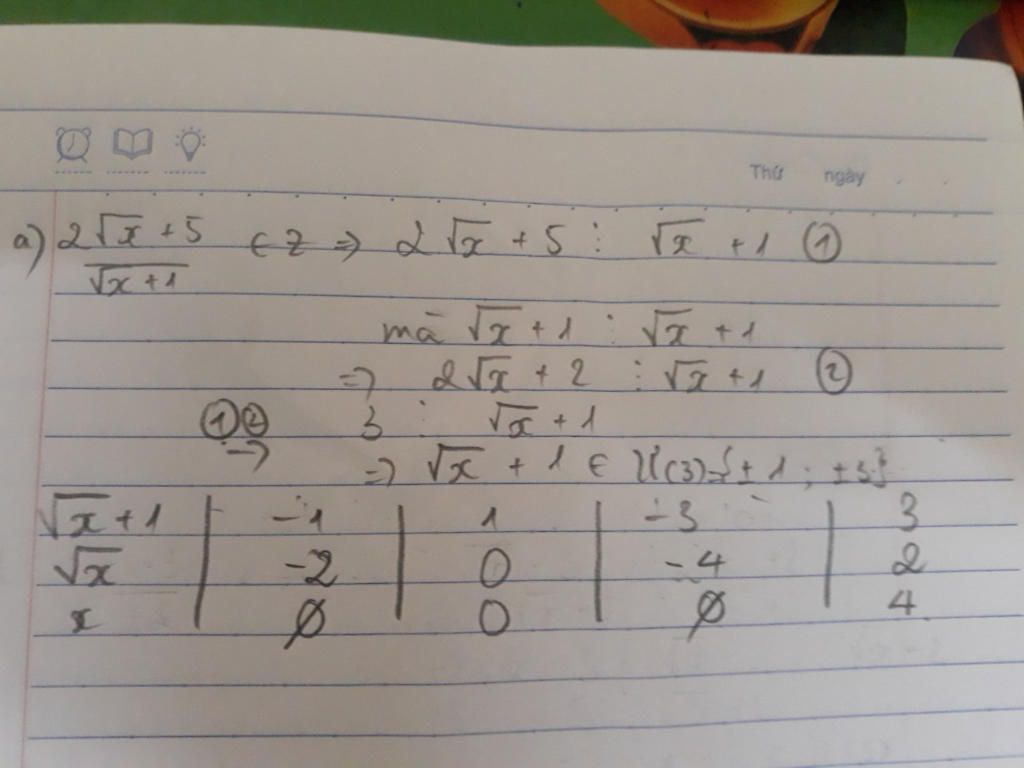 Thứ ngày
a) 2√x + 5 / √x + 1 ∈ Z ⇒ 2√x + 5 ⋮ √x + 1 ①
mà √x + 1 ⋮ √x + 1
⇒ 2√x + 2 ⋮ √x + 1 ②
①② → 3 ⋮ √x + 1
⇒ √x + 1 ∈ Ư(3)={±1; ±3}
√x + 1 | -1 | 1 | -3 | 3
√x | -2 | 0 | -4 | 2
x | ∅ | 0 | ∅ | 4